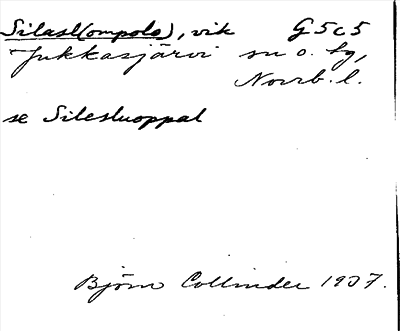 Silasl(ompolo), vik G5c5
Jukkasjärvi sn o. tg,
Norrb. l.
se Silesluoppal
Björn Collinder 1937.